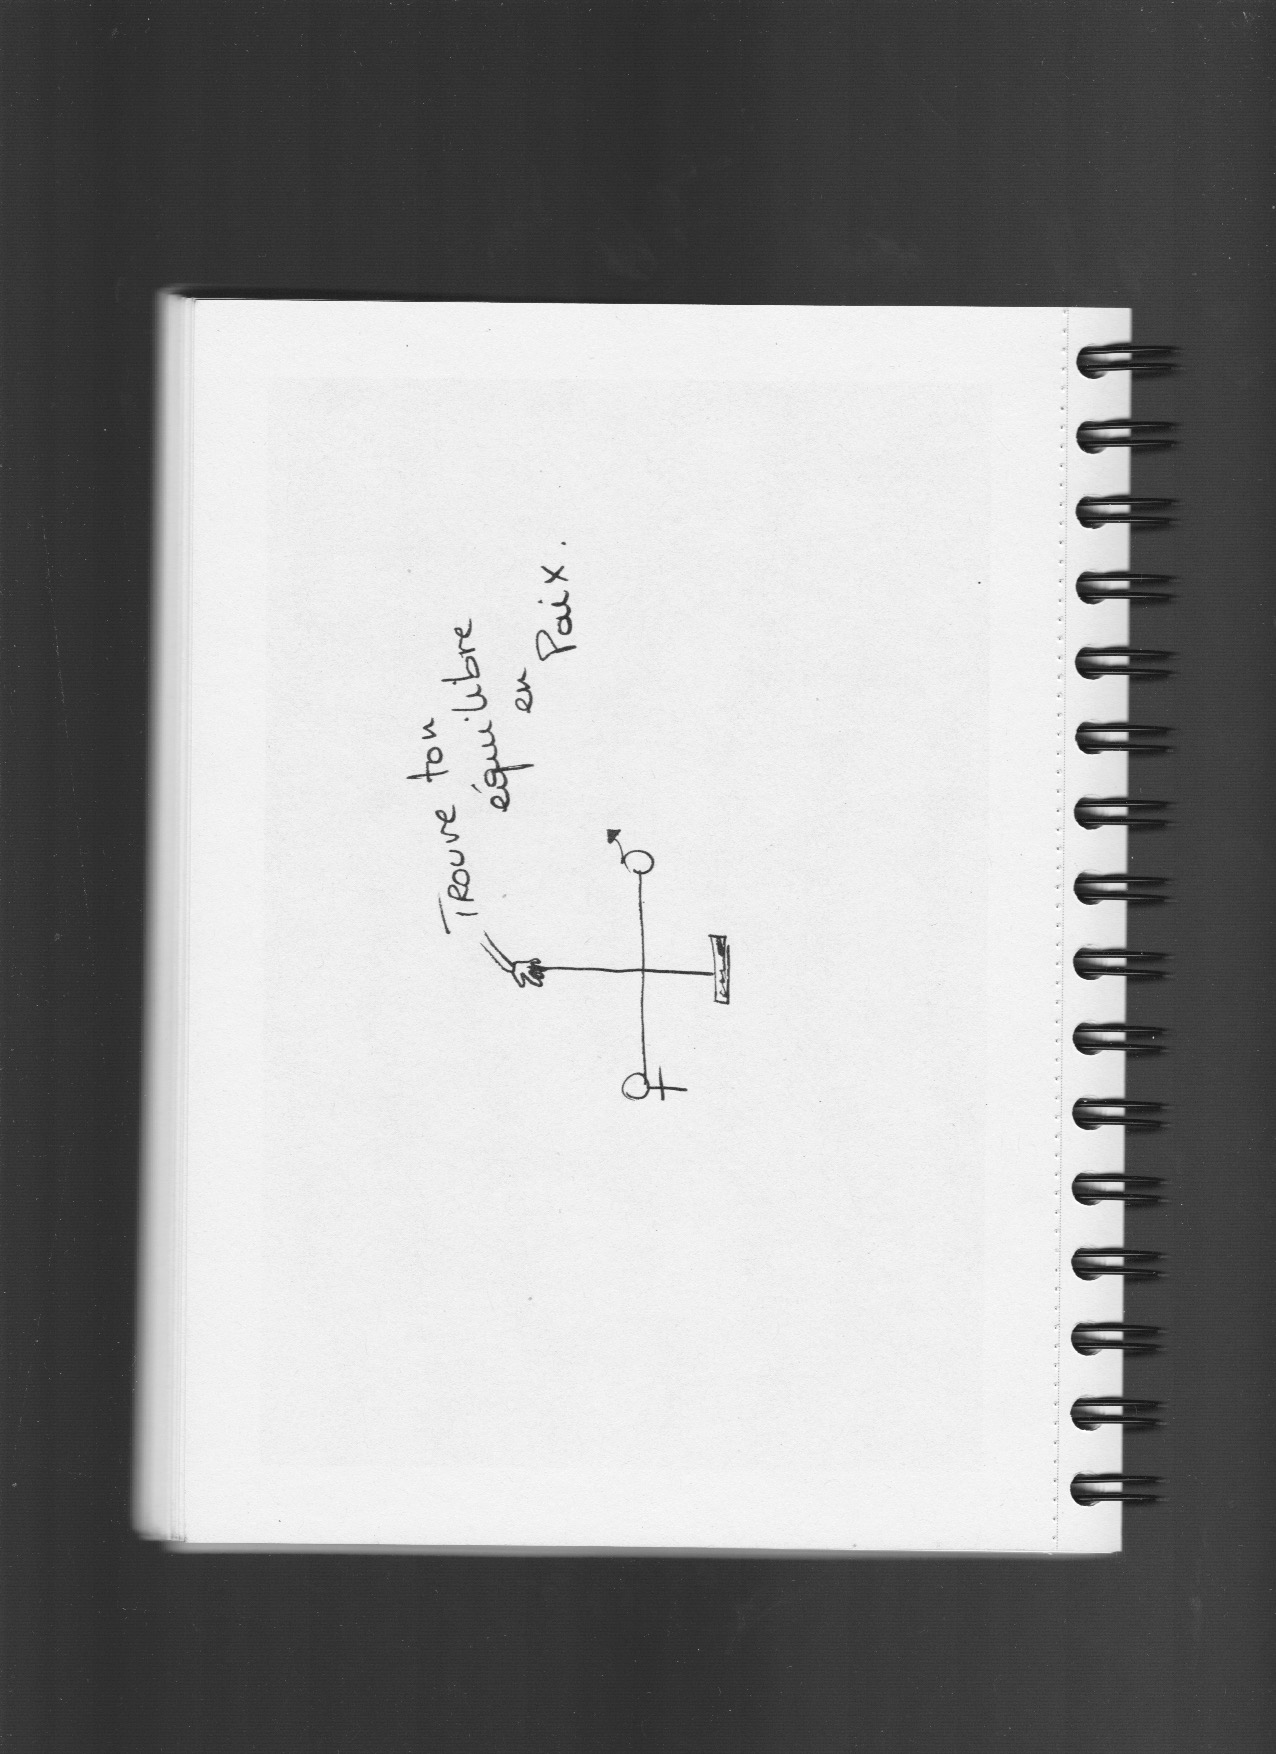 Trouve ton
équilibre
en
Paix.